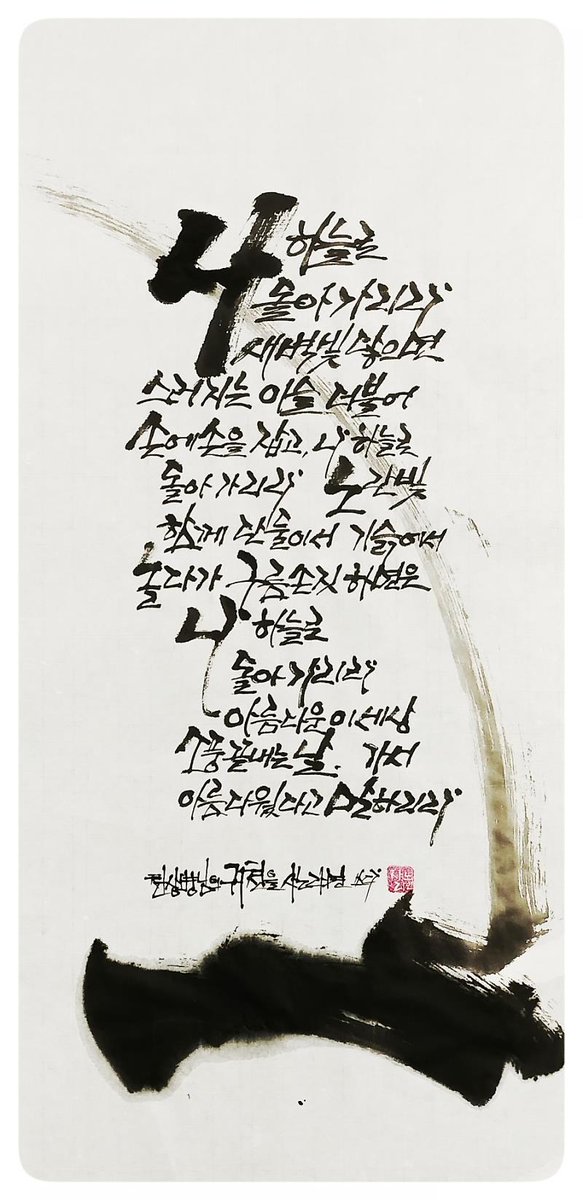 나 하늘로
돌아가리라
새벽빛 닿으면
스러지는 이슬 더불어
손에 손을 잡고, 나 하늘로
돌아가리라 노란빛
함께 단둘이서 기슭에서
놀다가 구름 손짓하면은
나 하늘로
돌아가리라
아름다운 이 세상
소풍 끝내는 날. 가서
아름다웠다고 말하리라
천상병님의 귀천을